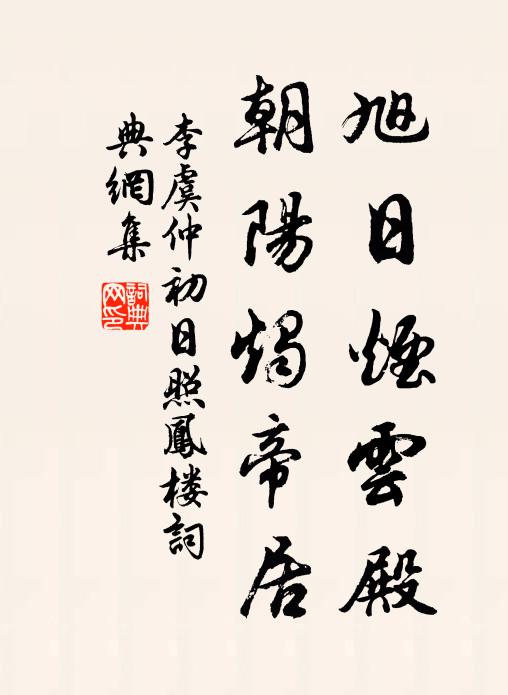 旭日煙雲殿
朝陽燭帝居
李虞仲初日照鳳楼詞
典網集
詞典
网印